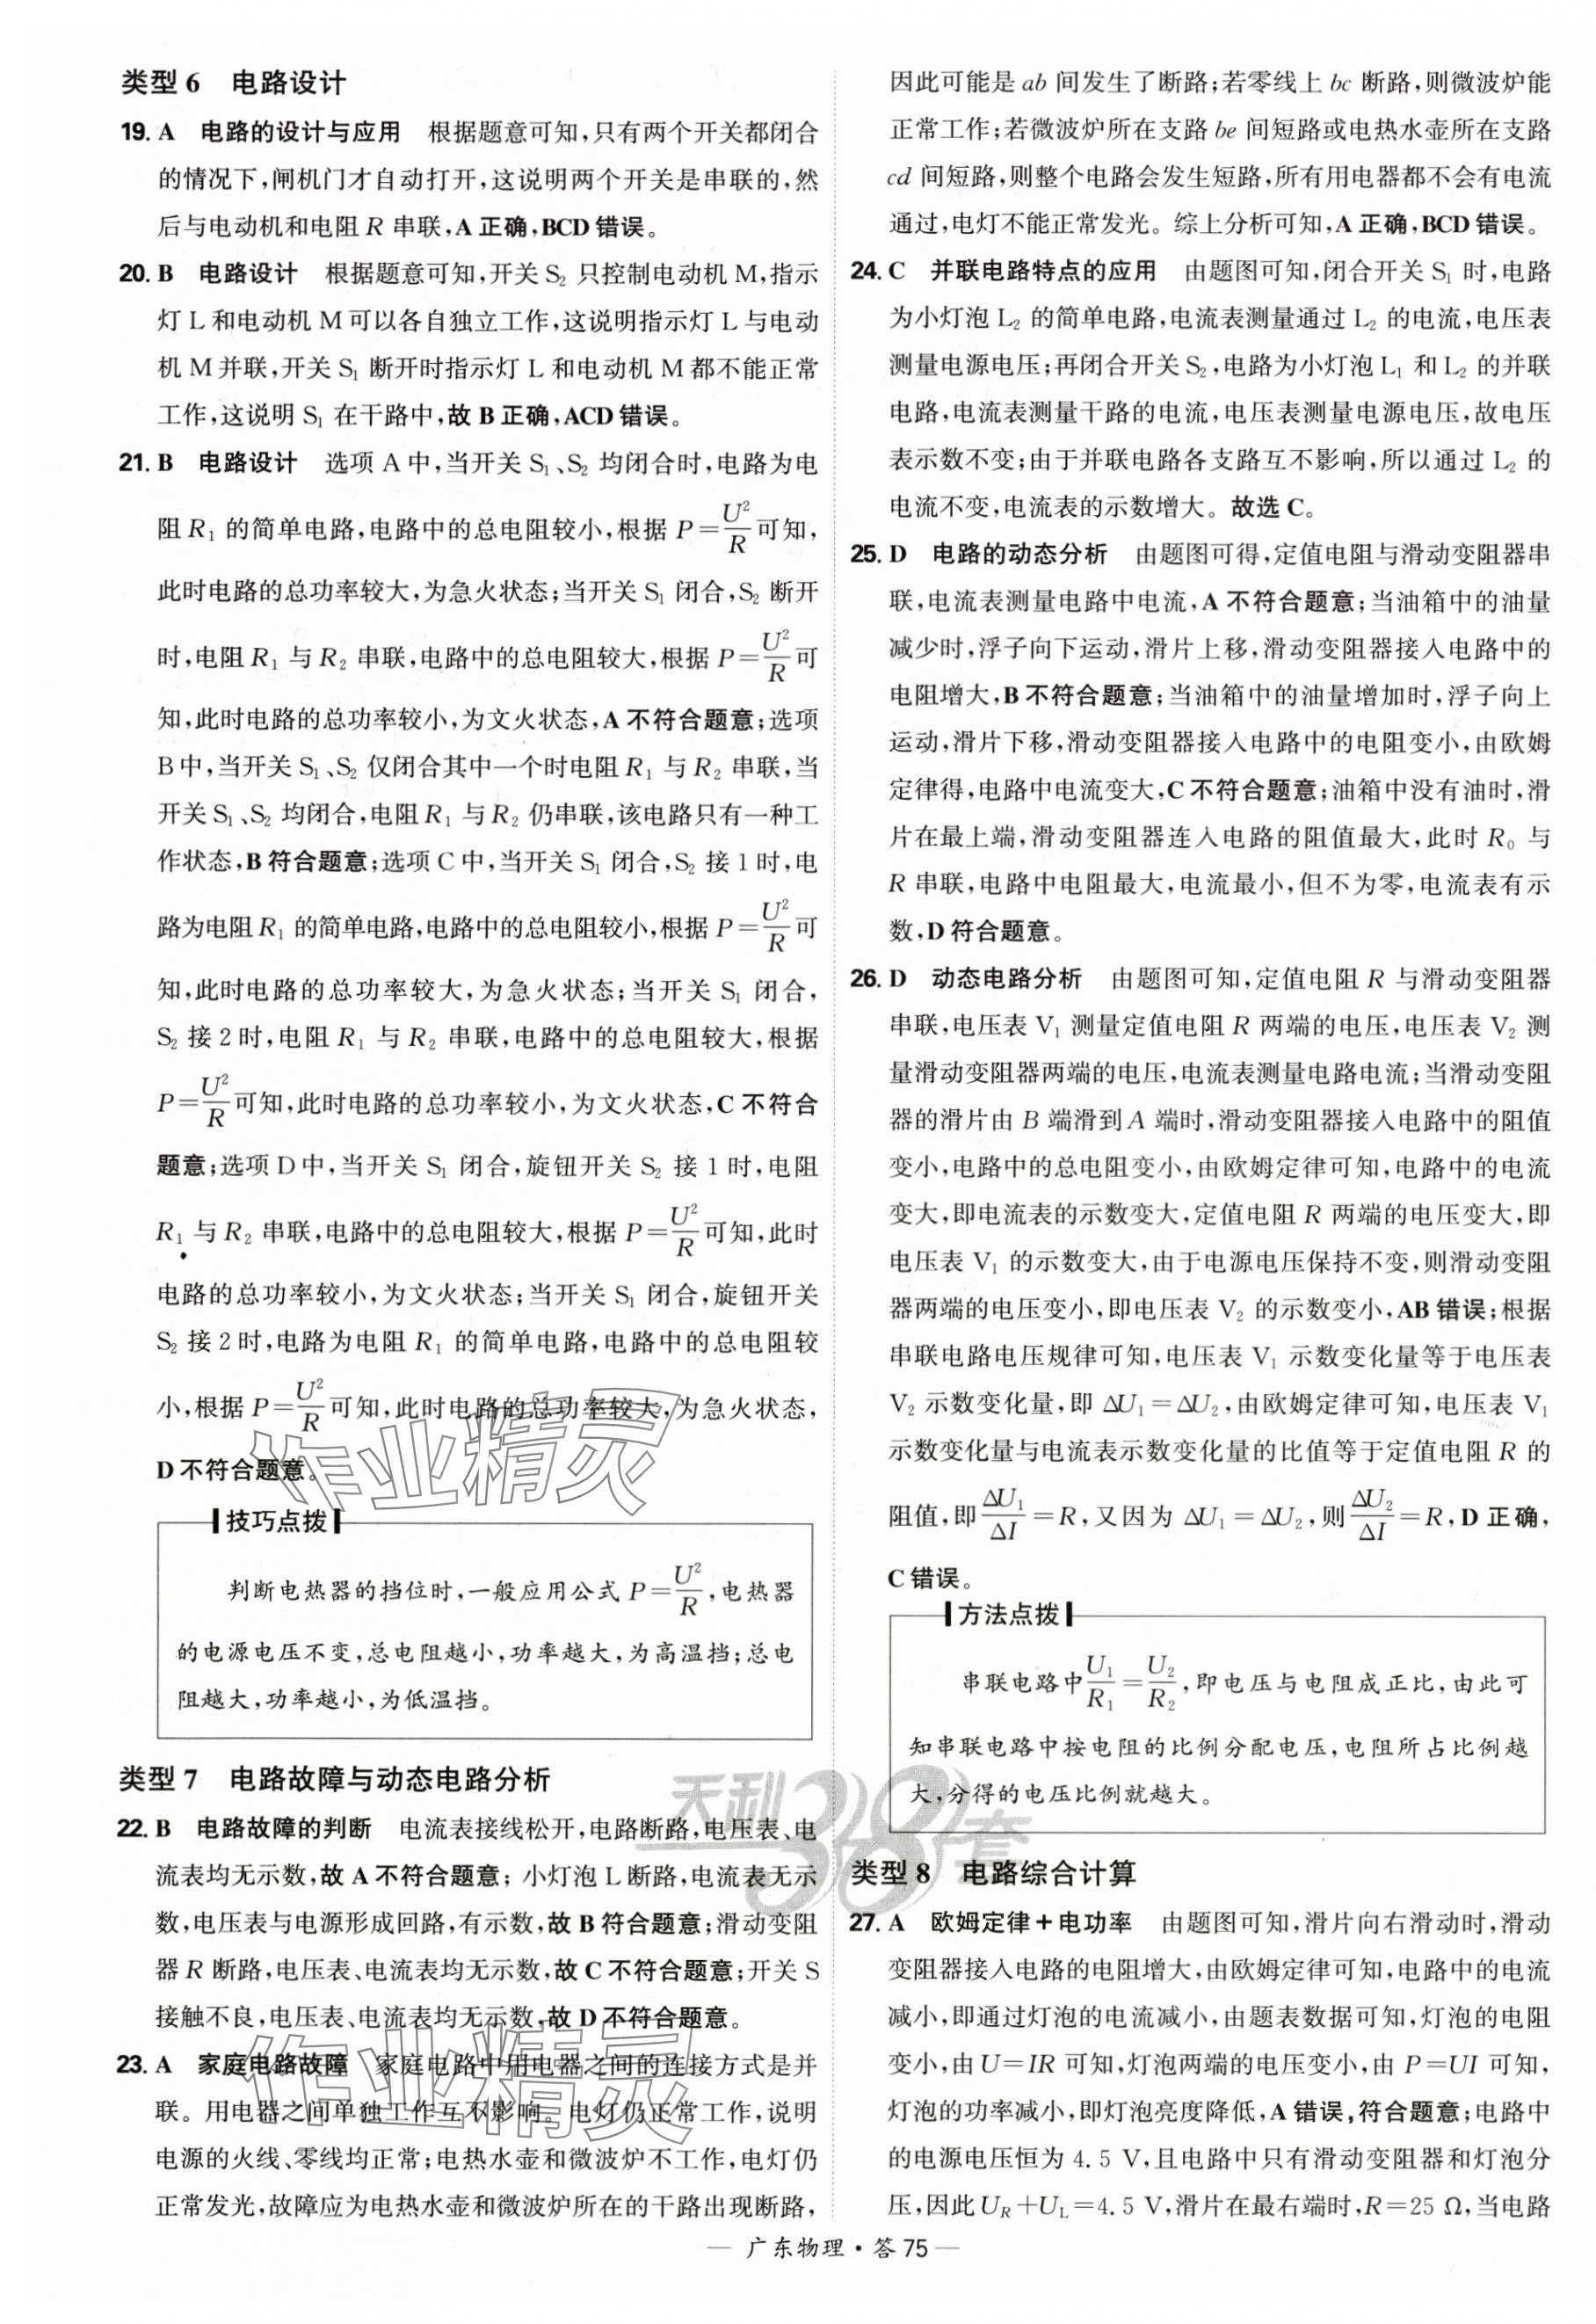 类型 6 电路设计
19. A 电路的设计与应用 根据题意可知,只有两个开关都闭合
的情况下,闸机门才自动打开,这说明两个开关是串联的,然
后与电动机和电阻 R 串联,A 正确,BCD 错误。
20. B 电路设计 根据题意可知,开关 S₂ 只控制电动机 M,指示
灯 L 和电动机 M 可以各自独立工作,这说明指示灯 L 与电动
机 M 并联,开关 S₁ 断开时指示灯 L 和电动机 M 都不能正常
工作,这说明 S₁ 在干路中,故 B 正确,ACD 错误。
21. B 电路设计 选项 A 中,当开关 S₁、S₂ 均闭合时,电路为电
阻 R₁ 的简单电路,电路中的总电阻较小,根据 P=U²/R 可知,
此时电路的总功率较大,为急火状态;当开关 S₁ 闭合,S₂ 断开
时,电阻 R₁ 与 R₂ 串联,电路中的总电阻较大,根据 P=U²/R 可
知,此时电路的总功率较小,为文火状态,A 不符合题意;选项
B 中,当开关 S₁、S₂ 仅闭合其中一个时电阻 R₁ 与 R₂ 串联,当
开关 S₁、S₂ 均闭合,电阻 R₁ 与 R₂ 仍串联,该电路只有一种工
作状态,B 符合题意;选项 C 中,当开关 S₁ 闭合,S₂ 接 1 时,电
路为电阻 R₁ 的简单电路,电路中的总电阻较小,根据 P=U²/R 可
知,此时电路的总功率较大,为急火状态;当开关 S₁ 闭合,
S₂ 接 2 时,电阻 R₁ 与 R₂ 串联,电路中的总电阻较大,根据
P=U²/R 可知,此时电路的总功率较小,为文火状态,C 不符合
题意;选项 D 中,当开关 S₁ 闭合,旋钮开关 S₂ 接 1 时,电阻
R₁ 与 R₂ 串联,电路中的总电阻较大,根据 P=U²/R 可知,此时
电路的总功率较小,为文火状态;当开关 S₁ 闭合,旋钮开关
S₂ 接 2 时,电路为电阻 R₁ 的简单电路,电路中的总电阻较
小,根据 P=U²/R 可知,此时电路的总功率较大,为急火状态,
D 不符合题意。
技巧点拨
判断电热器的挡位时,一般应用公式 P=U²/R,电热器
的电源电压不变,总电阻越小,功率越大,为高温挡;总电
阻越大,功率越小,为低温挡。
类型 7 电路故障与动态电路分析
22. B 电路故障的判断 电流表接线松开,电路断路,电压表、电
流表均无示数,故 A 不符合题意;小灯泡 L 断路,电流表无示
数,电压表与电源形成回路,有示数,故 B 符合题意;滑动变阻
器 R 断路,电压表、电流表均无示数,故 C 不符合题意;开关 S
接触不良,电压表、电流表均无示数,故 D 不符合题意。
23. A 家庭电路故障 家庭电路中用电器之间的连接方式是并
联。用电器之间单独工作互不影响。电灯仍正常工作,说明
电源的火线、零线均正常;电热水壶和微波炉不工作,电灯仍
正常发光,故障应为电热水壶和微波炉所在的干路出现断路,
因此可能是 ab 间发生了断路;若零线上 bc 断路,则微波炉能
正常工作;若微波炉所在支路 be 间短路或电热水壶所在支路
cd 间短路,则整个电路会发生短路,所有用电器都不会有电流
通过,电灯不能正常发光。综上分析可知,A 正确,BCD 错误。
24. C 并联电路特点的应用 由题图可知,闭合开关 S₁ 时,电路
为小灯泡 L₂ 的简单电路,电流表测量通过 L₂ 的电流,电压表
测量电源电压;再闭合开关 S₂,电路为小灯泡 L₁ 和 L₂ 的并联
电路,电流表测量干路的电流,电压表测量电源电压,故电压
表示数不变;由于并联电路各支路互不影响,所以通过 L₂ 的
电流不变,电流表的示数增大。故选 C。
25. D 电路的动态分析 由题图可得,定值电阻与滑动变阻器串
联,电流表测量电路中电流,A 不符合题意;当油箱中的油量
减少时,浮子向下运动,滑片上移,滑动变阻器接入电路中的
电阻增大,B 不符合题意;当油箱中的油量增加时,浮子向上
运动,滑片下移,滑动变阻器接入电路中的电阻变小,由欧姆
定律得,电路中电流变大,C 不符合题意;油箱中没有油时,滑
片在最上端,滑动变阻器连入电路的阻值最大,此时 R₀ 与
R 串联,电路中电阻最大,电流最小,但不为零,电流表有示
数,D 符合题意。
26. D 动态电路分析 由题图可知,定值电阻 R 与滑动变阻器
串联,电压表 V₁ 测量定值电阻 R 两端的电压,电压表 V₂ 测
量滑动变阻器两端的电压,电流表测量电路电流;当滑动变阻
器的滑片由 B 端滑到 A 端时,滑动变阻器接入电路中的阻值
变小,电路中的总电阻变小,由欧姆定律可知,电路中的电流
变大,即电流表的示数变大,定值电阻 R 两端的电压变大,即
电压表 V₁ 的示数变大,由于电源电压保持不变,则滑动变阻
器两端的电压变小,即电压表 V₂ 的示数变小,AB 错误;根据
串联电路电压规律可知,电压表 V₁ 示数变化量等于电压表
V₂ 示数变化量,即 ΔU₁=ΔU₂,由欧姆定律可知,电压表 V₁
示数变化量与电流表示数变化量的比值等于定值电阻 R 的
阻值,即 ΔU₁/ΔI=R,又因为 ΔU₁=ΔU₂,则 ΔU₂/ΔI=R,D 正确,
C 错误。
方法点拨
串联电路中 U₁/R₁=U₂/R₂,即电压与电阻成正比,由此可
知串联电路中按电阻的比例分配电压,电阻所占比例越
大,分得的电压比例就越大。
类型 8 电路综合计算
27. A 欧姆定律+电功率 由题图可知,滑片向右滑动时,滑动
变阻器接入电路的电阻增大,由欧姆定律可知,电路中的电流
减小,即通过灯泡的电流减小,由题表数据可知,灯泡的电阻
变小,由 U=IR 可知,灯泡两端的电压变小,由 P=UI 可知,
灯泡的功率减小,即灯泡亮度降低,A 错误,符合题意;电路中
的电源电压恒为 4.5 V,且电路中只有滑动变阻器和灯泡分
压,因此 U_R+U_L=4.5 V,滑片在最右端时,R=25 Ω,当电路
— 广东物理·答 75 —
作业精灵
天利38套
作业精灵